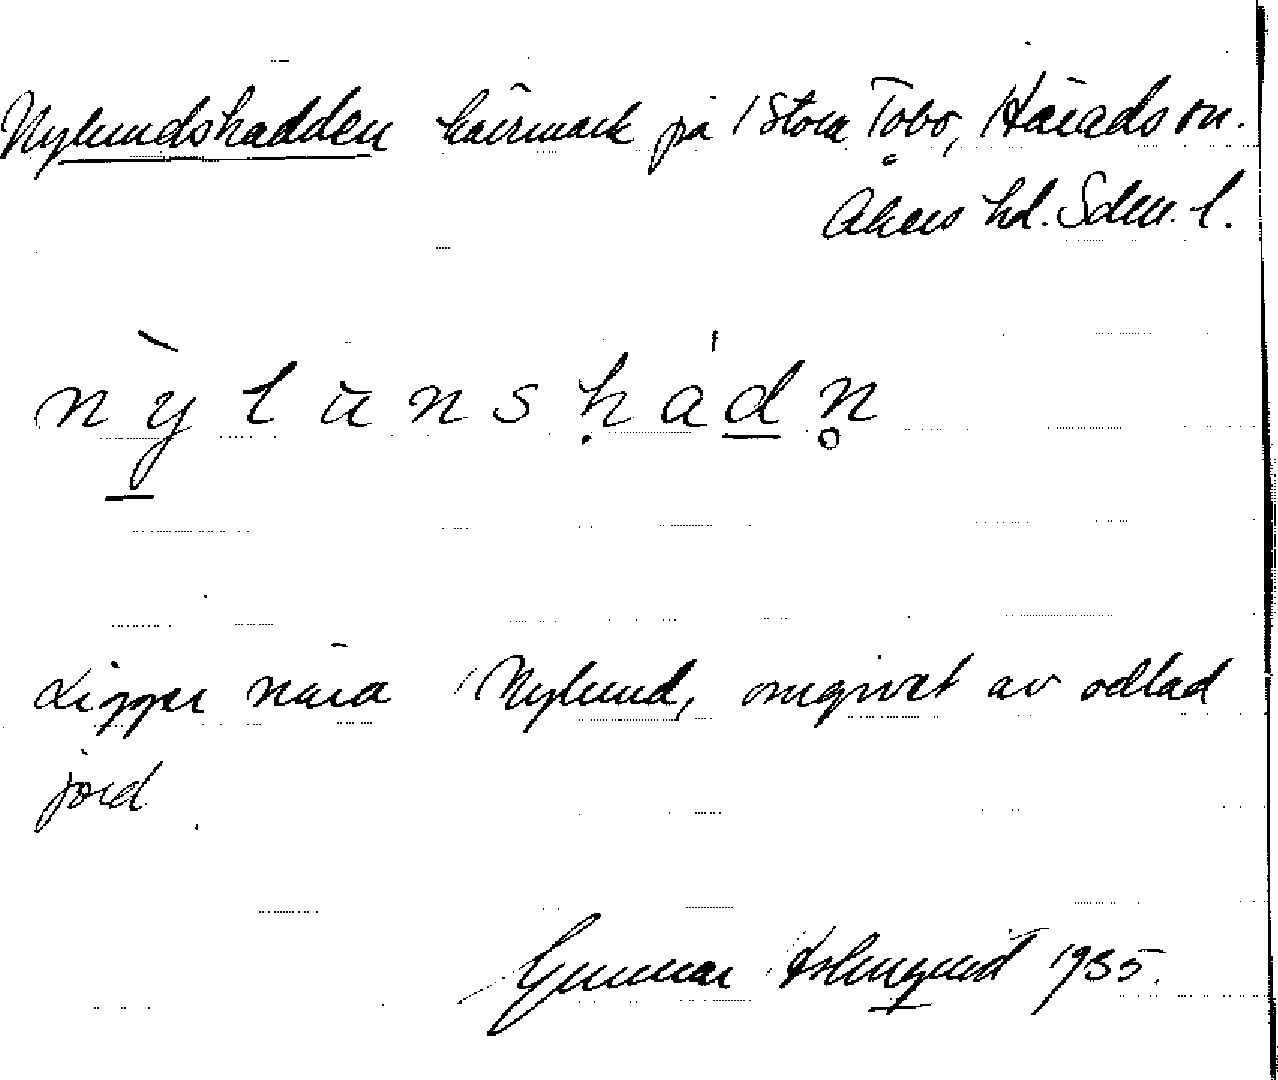 Nylundshadden kärrmark på Stora Töbo, Härads sn.
Åkers hd. Sdm. l.
nylunshadn
Ligger nära Nylund, omgivet av odlad
jord
Gunnar Holmquist 1935.